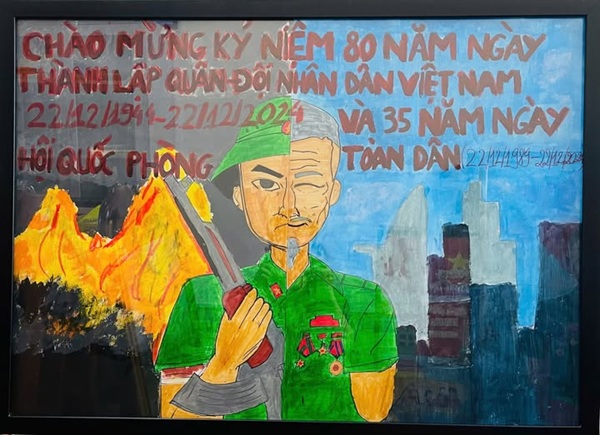 CHÀO MỪNG KỶ NIỆM 80 NĂM NGÀY
THÀNH LẬP QUÂN ĐỘI NHÂN DÂN VIỆT NAM
22/12/1944-22/12/2024 VÀ 35 NĂM NGÀY
HỘI QUỐC PHÒNG TOÀN DÂN (22/12/1989-22/12/2024